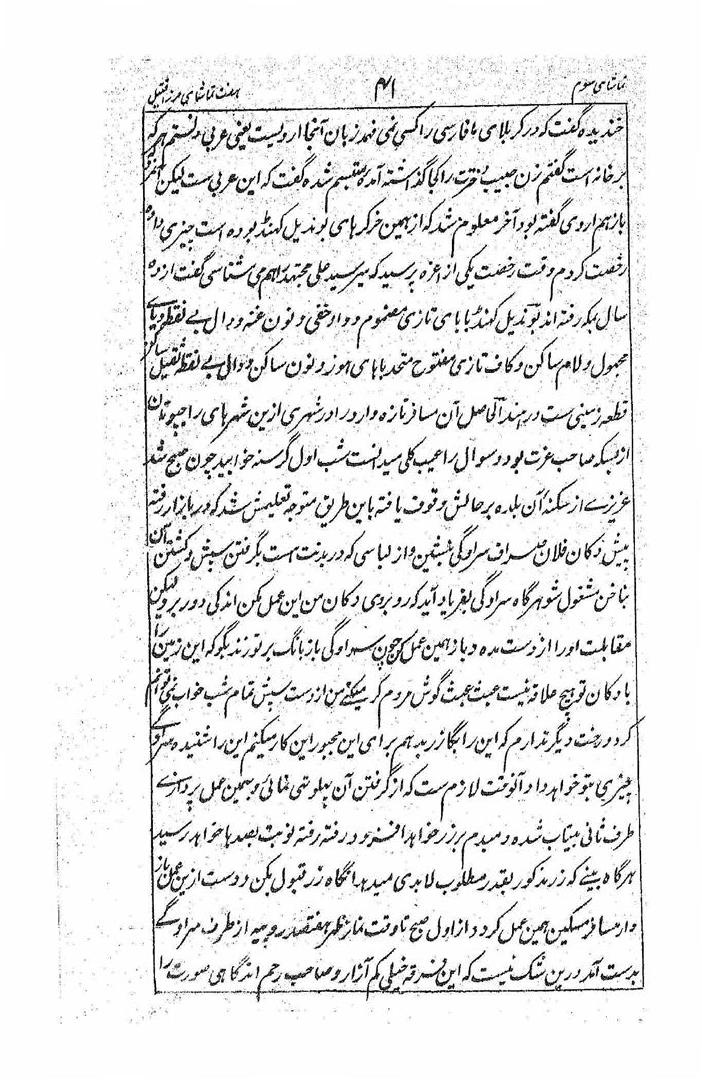 تماشای سوم ۴۱ هفت تماشای مرزا قتیل
خندیده گفت که در کربلای ما فارسی را کسی نمی فهمد زبان آنجا اردویست یعنی عربی دانستم هر که
بر خانه است گفتم زن حبیب دخترت را کجا گذاشته آمده متبسم شده گفت که این عربی ست لیکن
باز هم اردوی گفته بود آخر معلوم شد که از همین خرگرهای بوندیل کهنڈ بوده است چیزی داده
رخصت کردم وقت رخصت یکی از اعزه پرسید که میر سید علی مجتهد را هم می شناسی گفت از ده
سال بمکه رفته اند بوندیل کهنڈ با بای تازی مضموم و واو خفی و نون غنه و دال بے نقطه و یاے
مجهول و لام ساکن و کاف تازی مفتوح متحد با های هوز و نون ساکن و دال بے نقطه ثقیل ساکن
قطعه زمینی ست در هند الحاصل آن مسافر تازه وارد را در شهری ازین شهرهای راجپوتان
از بسکه صاحب عزت بود و سوال را عیب کلی میدانست شب اول گرسنه خوابید چون صبح شد
عزیزے از سکنهٔ آن بلده بر حالش وقوف یافته باین طریق متوجه تعلیمش شد که در بازار رفته
پیش دکان فلان صراف سراوگی بنشین و از لباسی که در بدنت است بگرفتن سپش و کشتن آن
بناخن مشغول شو هرگاه سراوگی بفریاد آید که روبروی دکان من این عمل مکن اندکی دورتر رو لیکن
مقابلت او را از دست مده و باز همین عمل کن چون سراوگی باز بانگ بر تو زند بگو که این زمین را
با دکان تو هیچ علاقه نیست عبث عبث گوش مردم کر میکنی من از دست سپش تمام شب خواب نمی توانم
کرد و رخت دیگر ندارم که این را بگازر بدهم برای این مجبور این کار میکنم این را شنیده سراوگے
چیزی بتو خواهد داد آنوقت لازم ست که از گرفتن آن پهلو تهی نمائی و بهمین عمل پردازے
طرف ثانی بیتاب شده دمبدم بر زر خواهد افزود و رفته رفته نوبت بصدها خواهد رسید
هرگاه بینے که زر مذکور بقدر مطلوب لابدی میدهد آنگاه زر قبول بکن و دست ازین عمل باز
دار مسافر مسکین همین عمل کرد و از اول صبح تا وقت نماز ظهر هفتصد روپیه از طرف سراوگے
بدست آمد درین شک نیست که این فرقه خیلی کم آزار و صاحب رحم اند گاهی صورت را